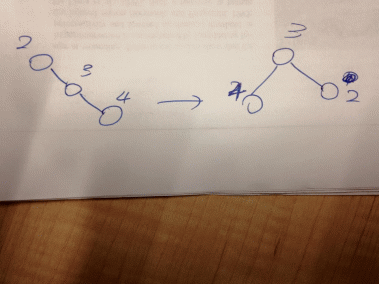 2
3
4
3
4
2